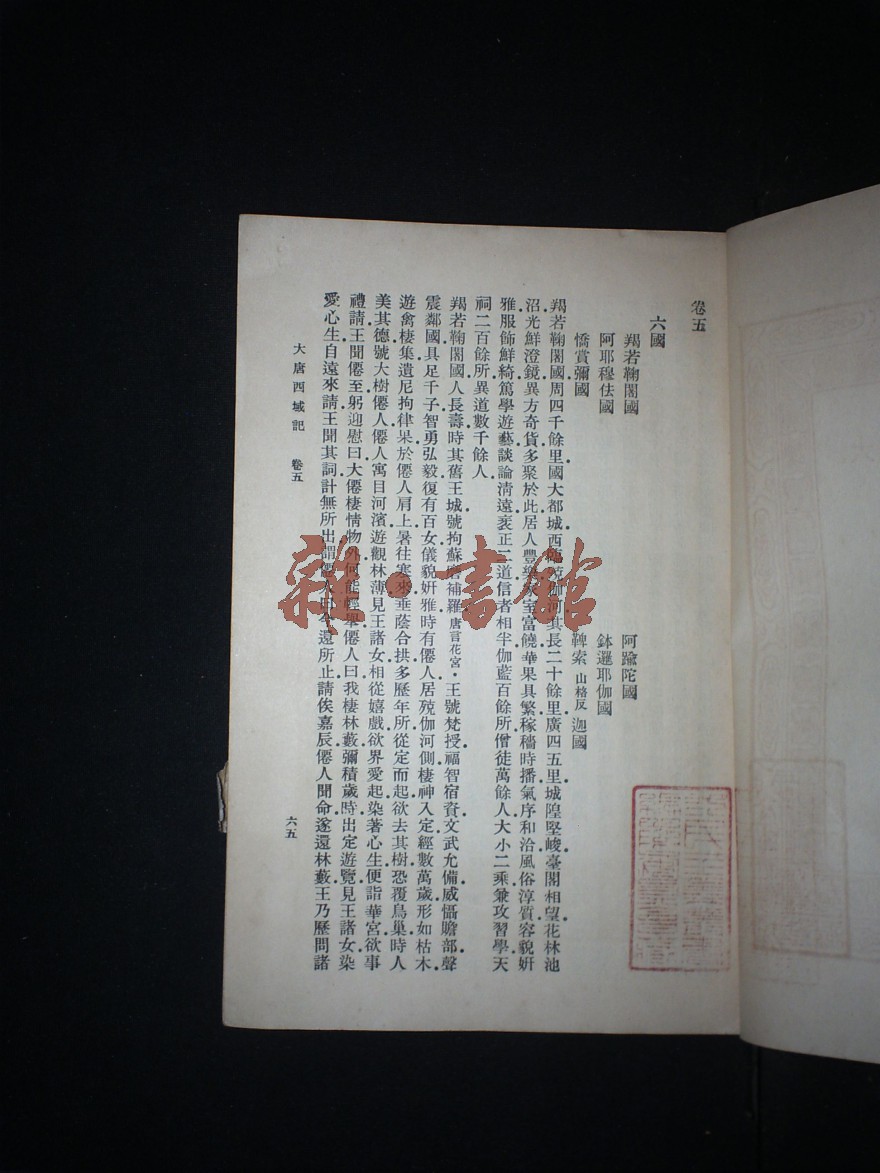 卷五
六國
羯若鞠闍國 阿踰陀國
阿耶穆佉國 鉢邏耶伽國
憍賞彌國 鞞索山格反迦國
羯若鞠闍國周四千餘里國大都城西臨殑伽河其長二十餘里廣四五里城隍堅峻臺閣相望花林池
沼光鮮澄鏡異方奇貨多聚於此居人豐樂家室富饒華果具繁稼穡時播氣序和洽風俗淳質容貌妍
雅服飾鮮綺篤學遊藝談論淸遠衺正二道信者相半伽藍百餘所僧徒萬餘人大小二乘兼攻習學天
祠二百餘所異道數千餘人
羯若鞠闍國人長壽時其舊王城號拘蘇磨補羅唐言花宮・王號梵授福智宿資文武允備威懾贍部聲
震鄰國具足千子智勇弘毅復有百女儀貌妍雅時有僊人居殑伽河側棲神入定經數萬歲形如枯木
遊禽棲集遺尼拘律果於僊人肩上暑往寒來垂蔭合拱多歷年所從定而起欲去其樹恐覆鳥巢時人
美其德號大樹僊人僊人寓目河濱遊觀林薄見王諸女相從嬉戲欲界愛起染著心生便詣華宮欲事
禮請王聞僊至躬迎慰曰大僊棲情物外何能輕舉僊人曰我棲林藪彌積歲時出定遊覽見王諸女染
愛心生自遠來請王聞其詞計無所出謂僊人曰今還所止請俟嘉辰僊人聞命遂還林藪王乃歷問諸
大唐西域記 卷五 六五
雜・書館